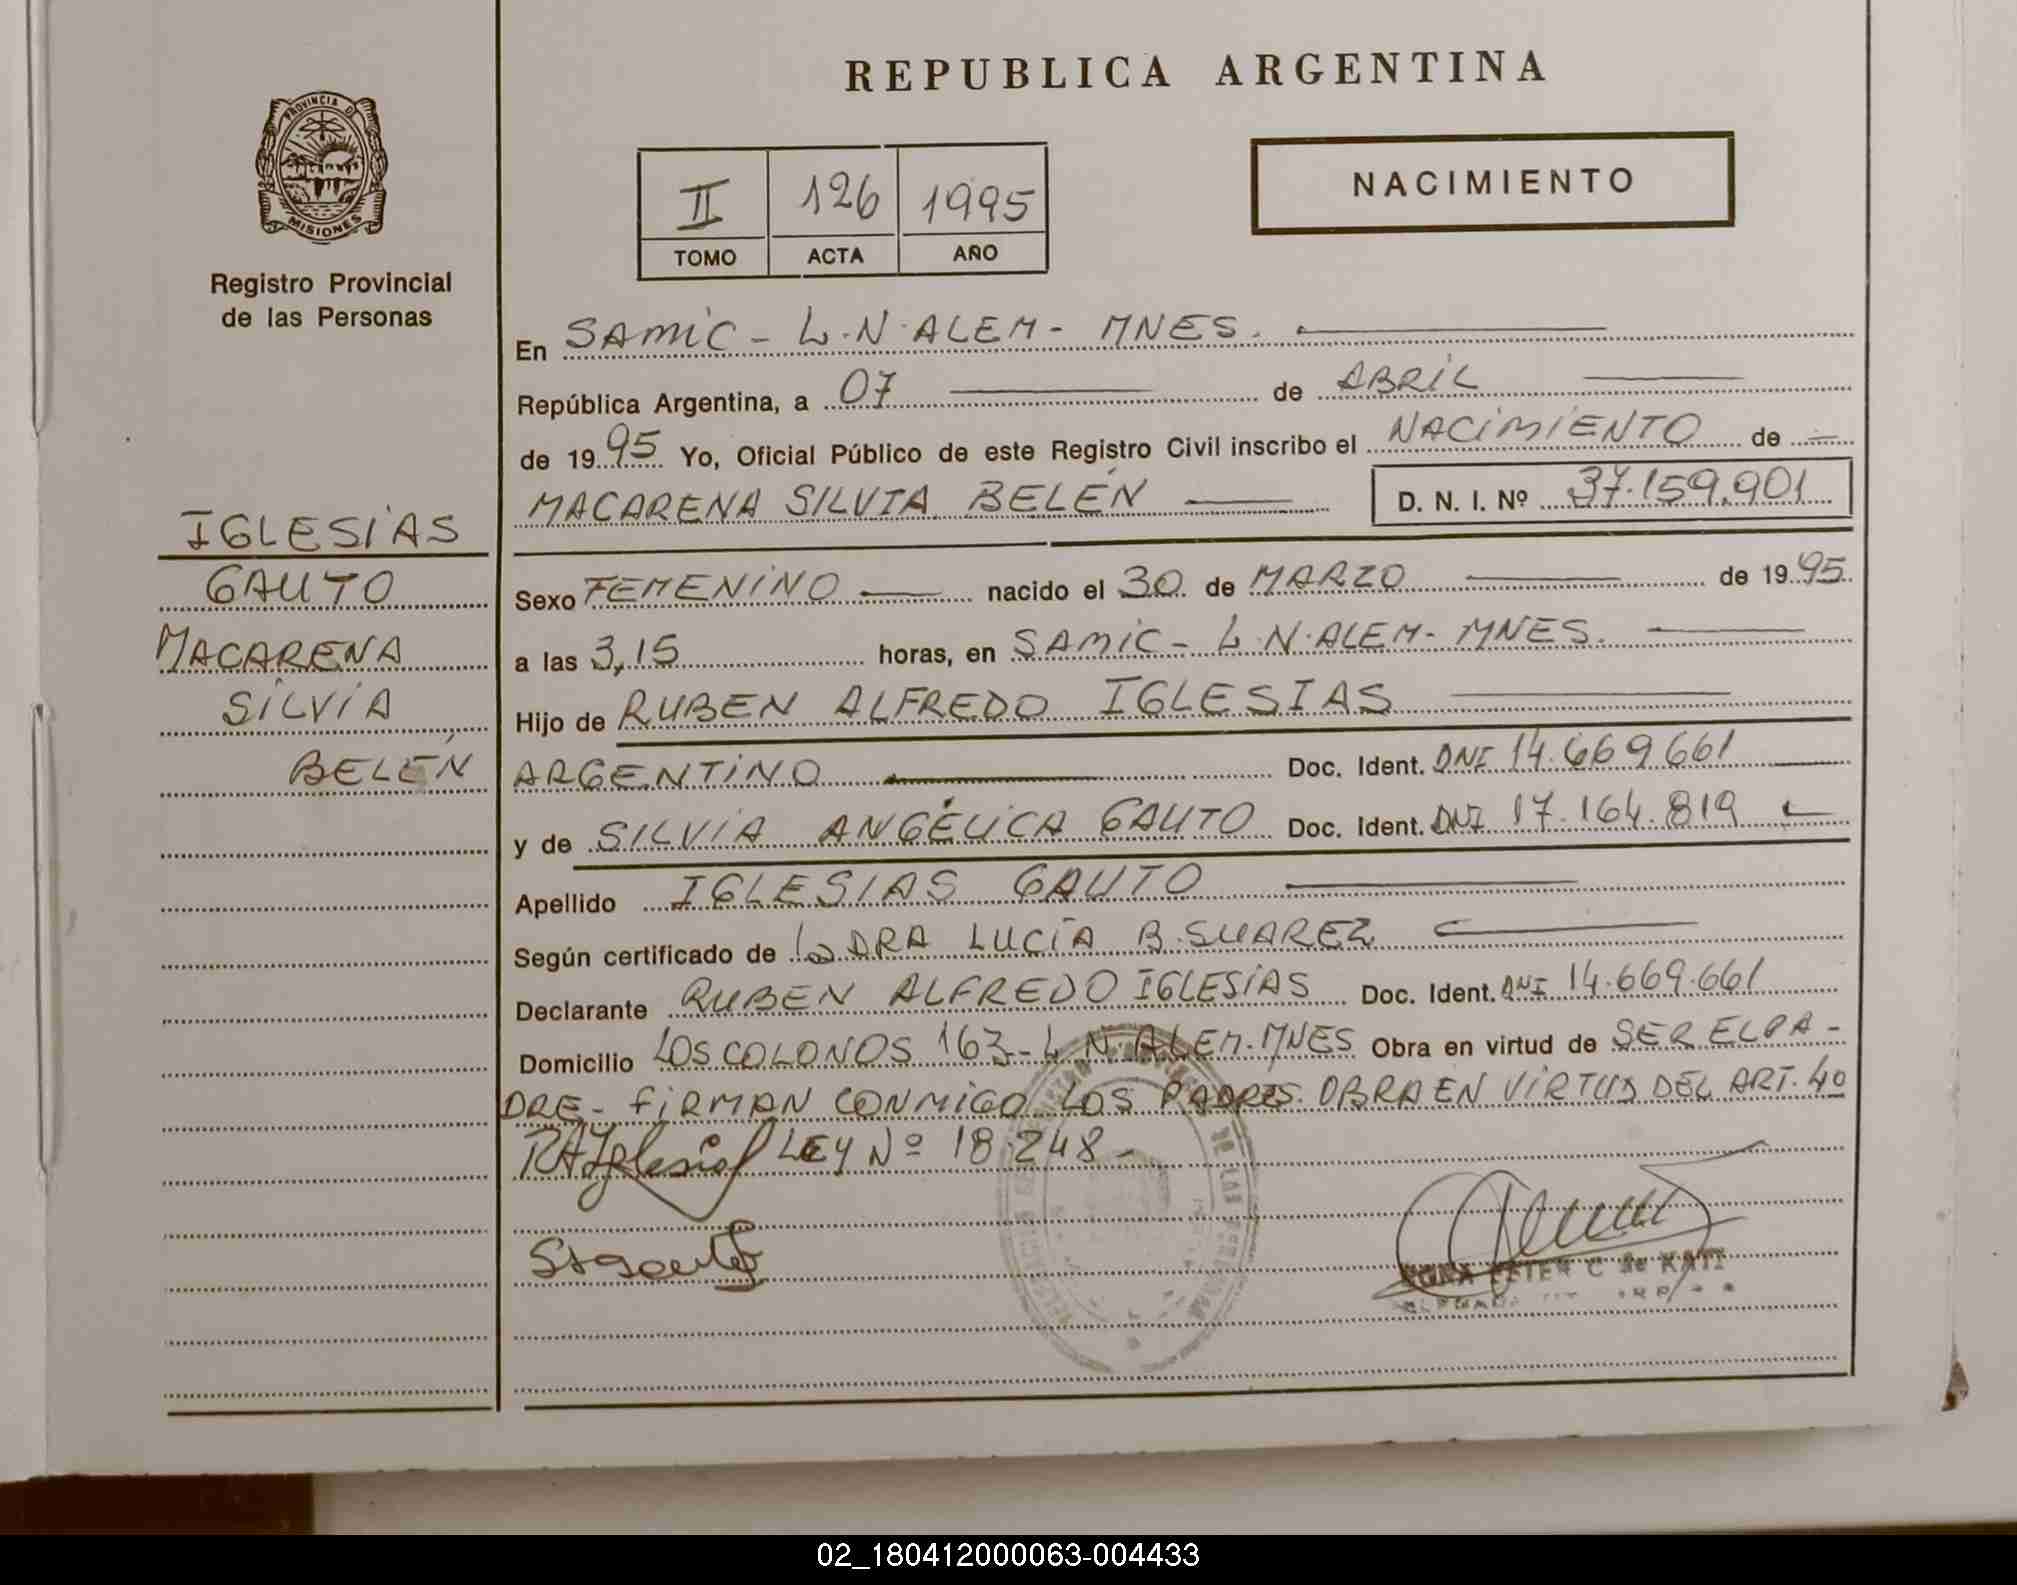 REPUBLICA ARGENTINA
PROVINCIA DE
MISIONES
Registro Provincial
de las Personas
II 126 1995
TOMO ACTA AÑO
NACIMIENTO
En SAMIC - L.N. ALEM - MNES.
República Argentina, a 07 de ABRIL
de 1995 Yo, Oficial Público de este Registro Civil inscribo el NACIMIENTO de
MACARENA SILVIA BELÉN D. N. I. Nº 37.159.901
IGLESIAS
GAUTO
MACARENA
SILVIA
BELÉN
Sexo FEMENINO nacido el 30 de MARZO de 1995
a las 3,15 horas, en SAMIC - L.N. ALEM - MNES.
Hijo de RUBEN ALFREDO IGLESIAS
ARGENTINO Doc. Ident. DNI 14.669.661
y de SILVIA ANGÉLICA GAUTO Doc. Ident. DNI 17.164.819
Apellido IGLESIAS GAUTO
Según certificado de la DRA LUCIA B. SUAREZ
Declarante RUBEN ALFREDO IGLESIAS Doc. Ident. DNI 14.669.661
Domicilio LOS COLONOS 163 - L.N. ALEM - MNES Obra en virtud de SER EL PA-
DRE - FIRMAN CONMIGO LOS PADRES. OBRA EN VIRTUD DEL ART. 40
RAIglesias LEY Nº 18.248 -
DE LAS
02_180412000063-004433